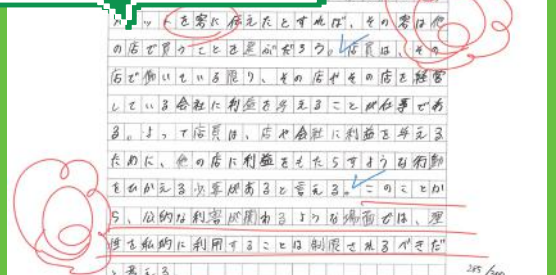 ットを客に伝えたとすれば、その客は他
の店で買うことを選ぶだろう。店員は、その
店で働いている限り、その店やその店を経営
している会社に利益を与えることが仕事であ
る。よって店員は、店や会社に利益を与える
ために、他の店に利益をもたらすような行動
をひかえる必要があると言える。このことか
ら、公的な利害が関わるような場面では、理
性を私的に利用することは制限されるべきだ
と言える